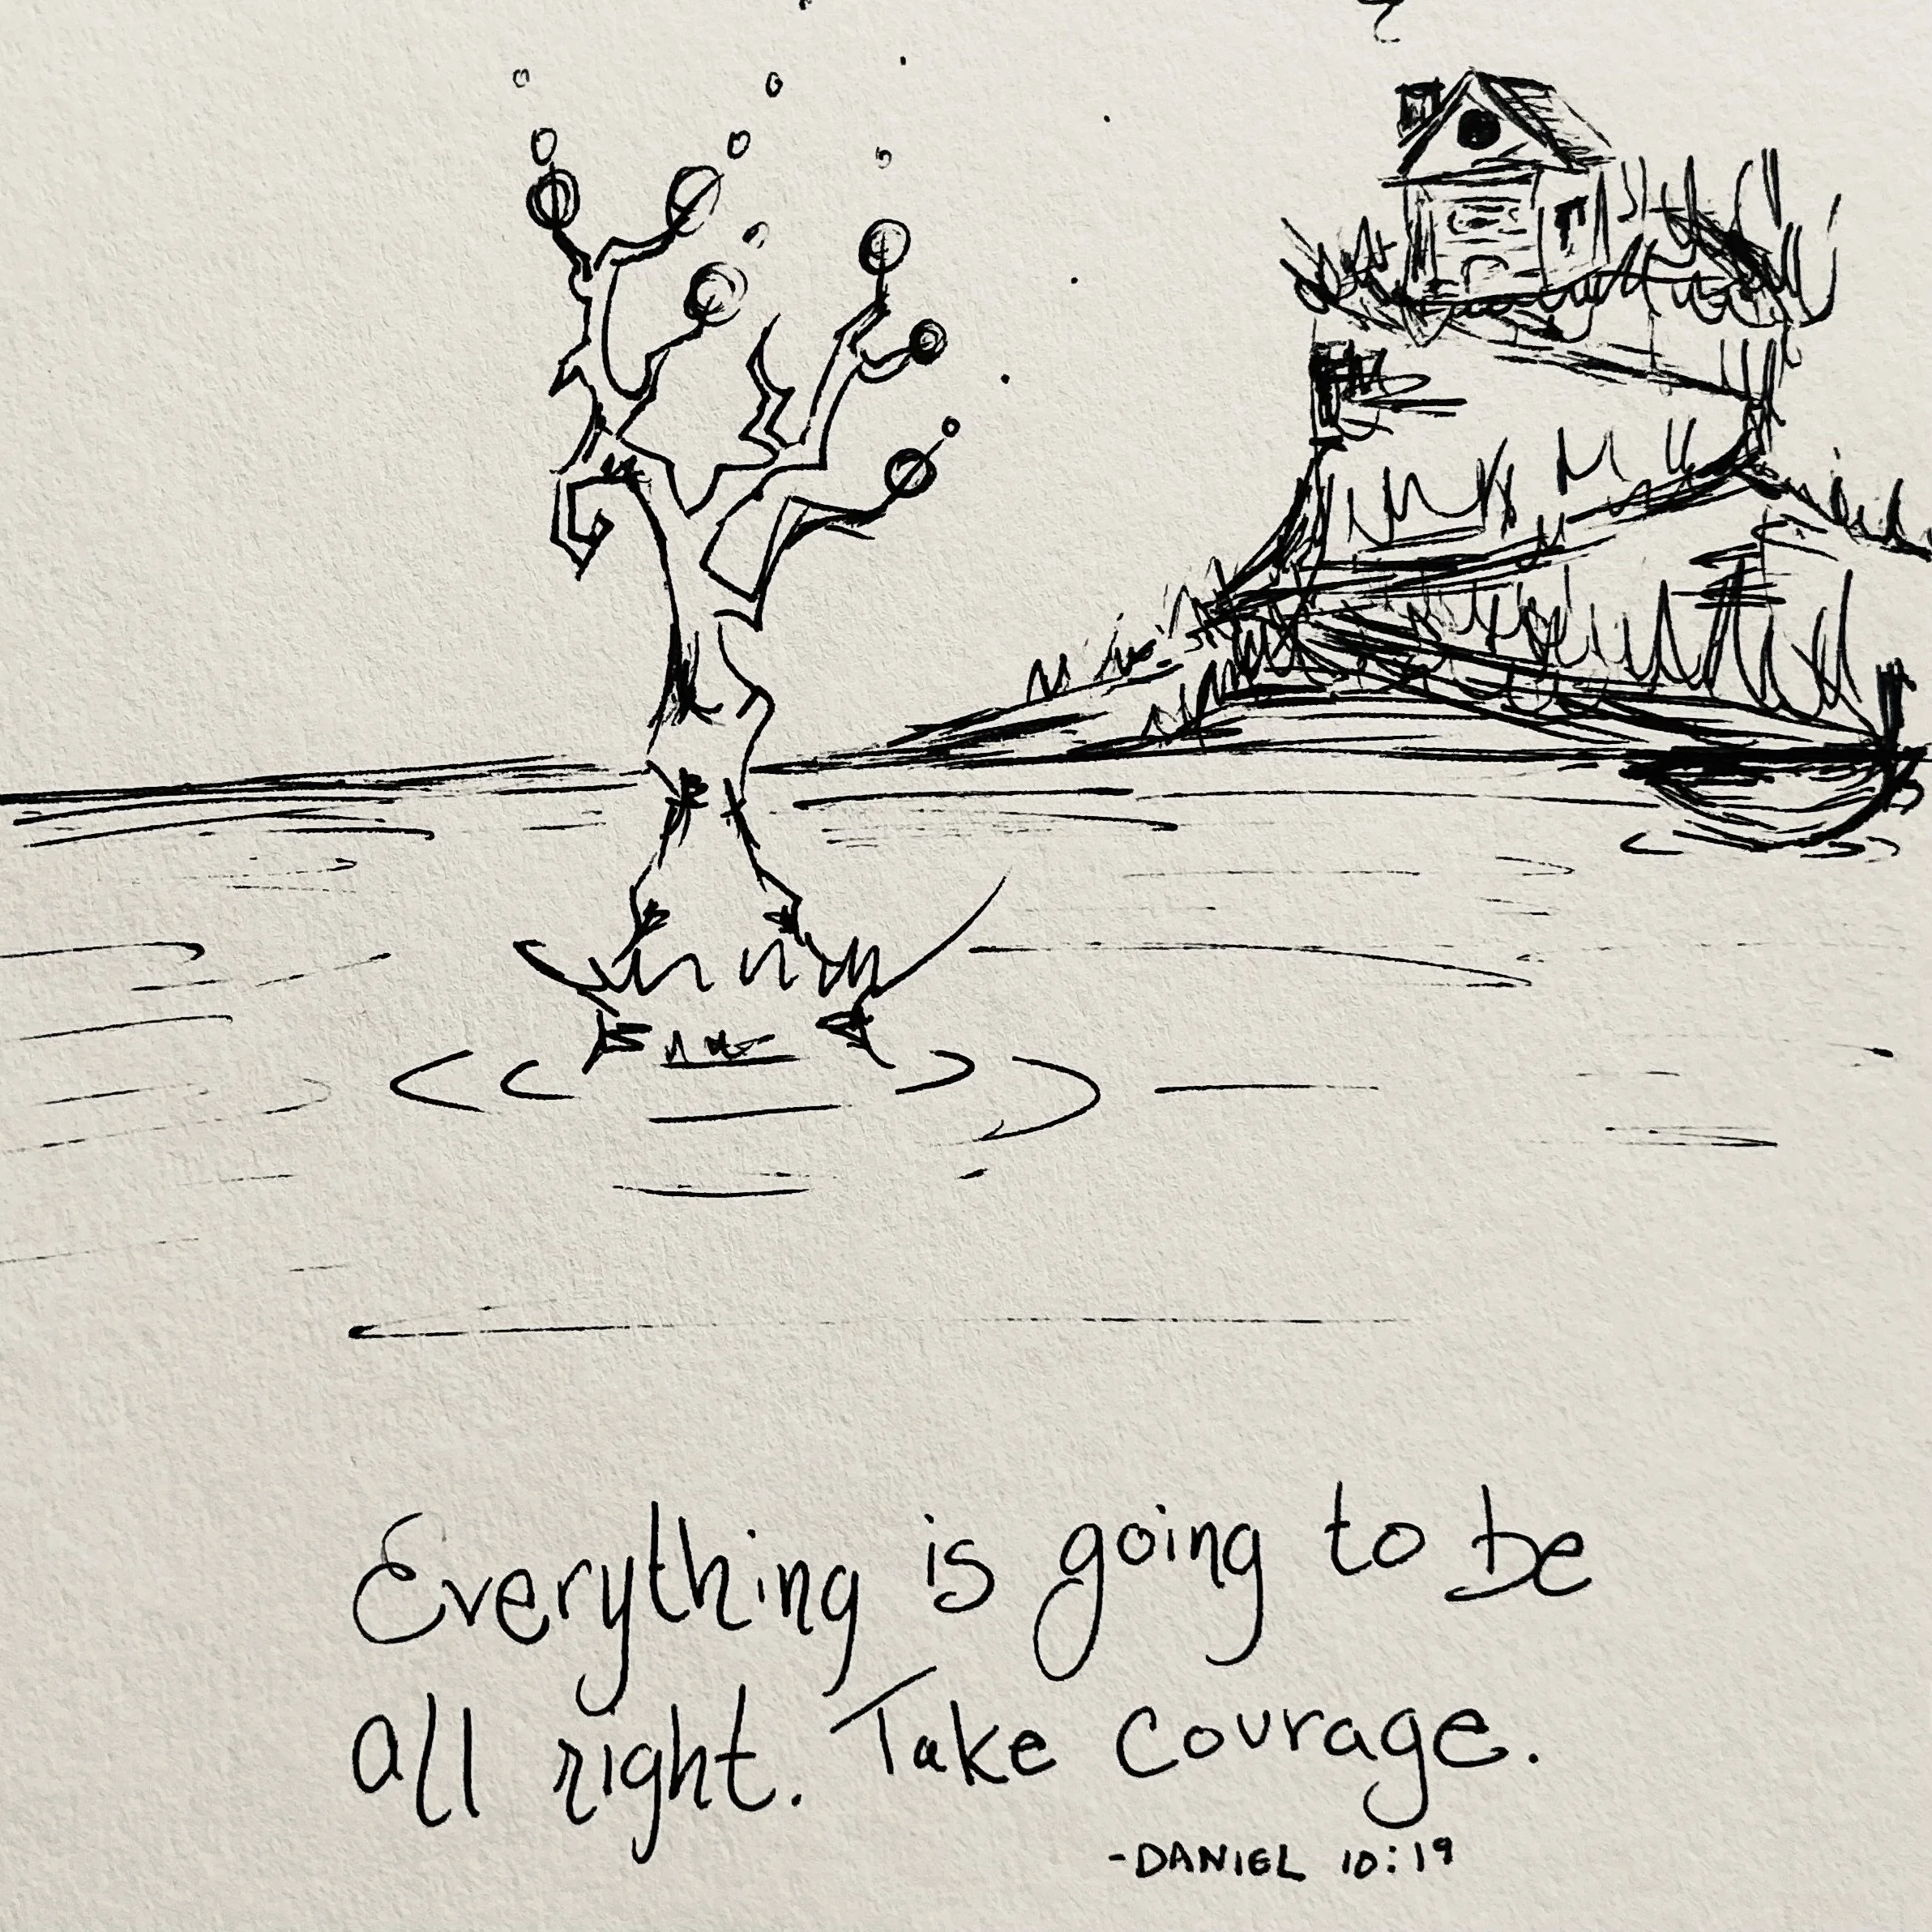 Everything is going to be
all right. Take courage.
-DANIEL 10:19